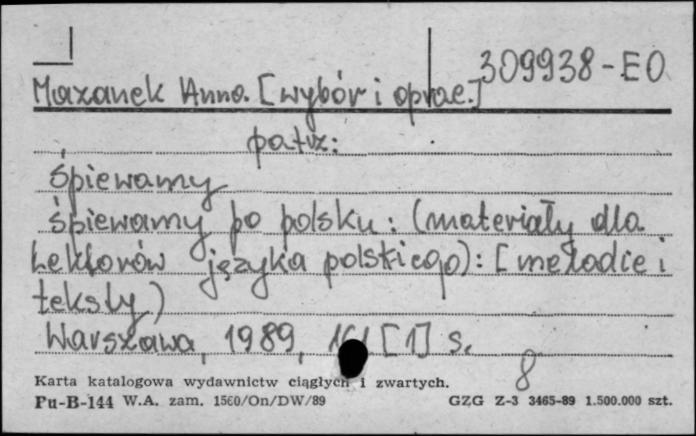 309938-EO
Mazanek Anna. [wybór i oprac.]
patrz:
śpiewamy
śpiewamy po polsku: (materiały dla
Lektorów języka polskiego): [melodie i
teksty)
Warszawa, 1989, [1] s.
8
Karta katalogowa wydawnictw ciągłych i zwartych.
Pu-B-144 W.A. zam. 1560/On/DW/89 GZG Z-3 3465-89 1.500.000 szt.